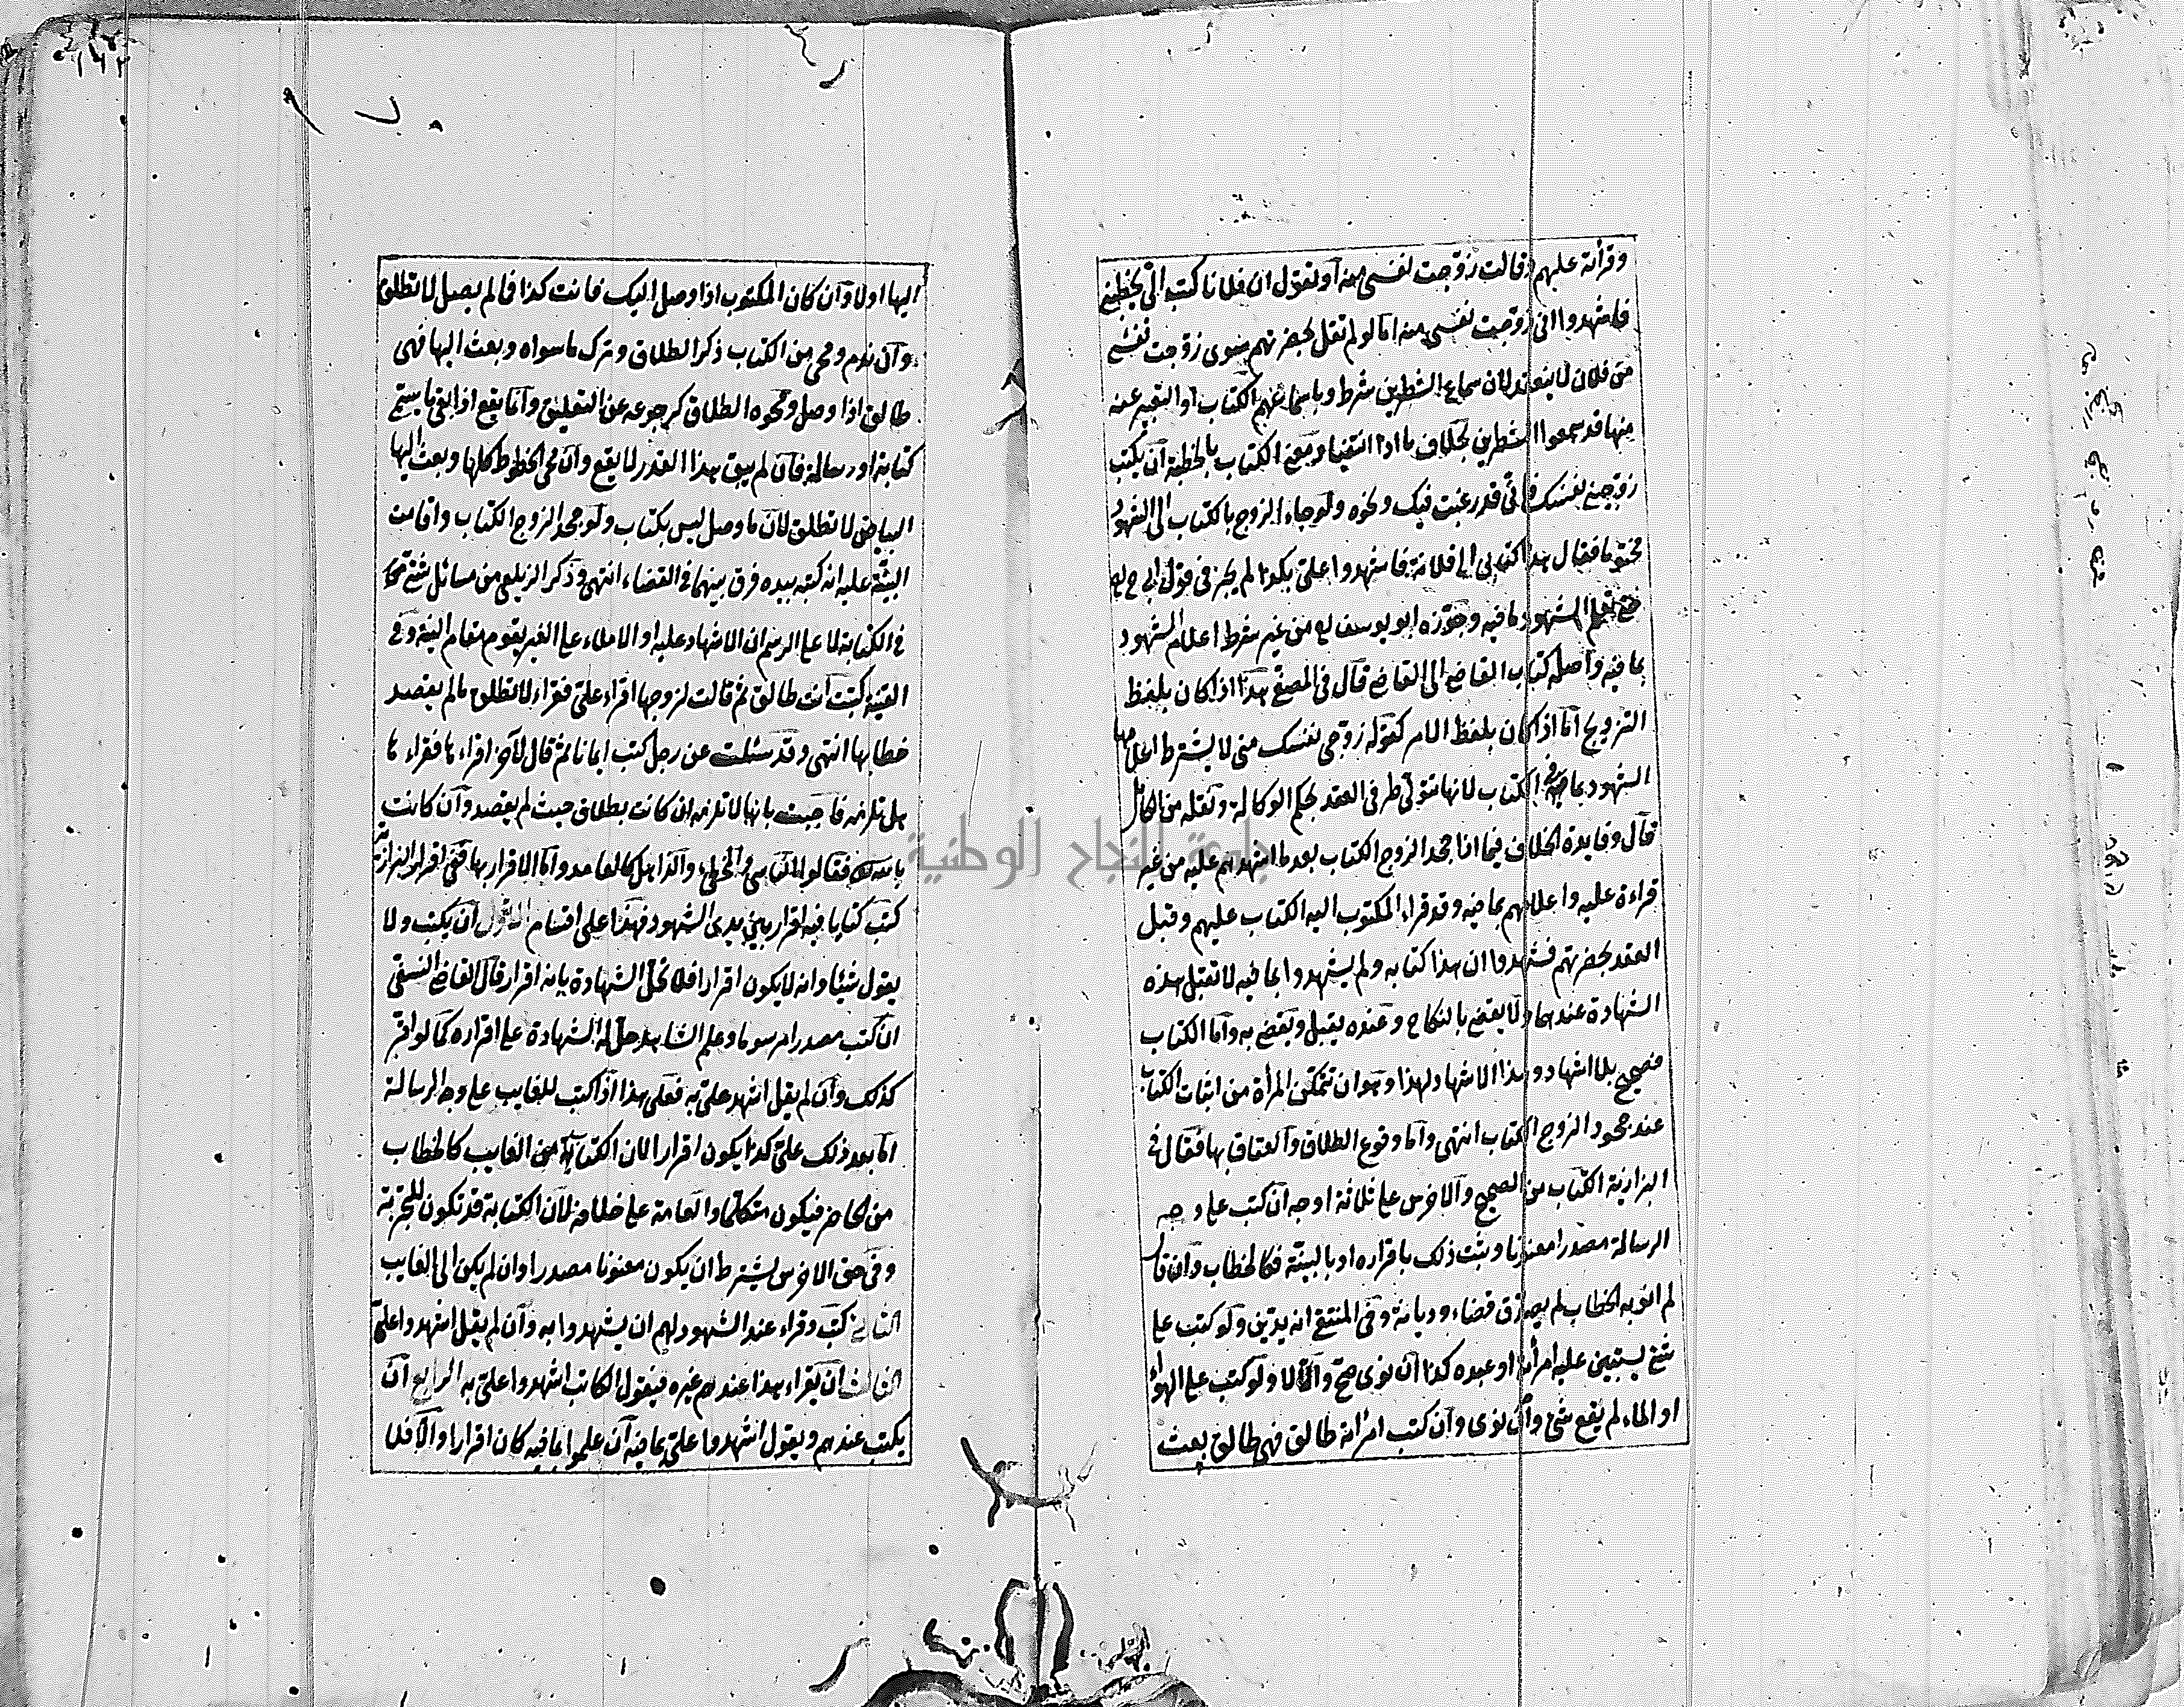 وقرأته عليهم وقالت زوجت نفسي منه أو تقول ان فلانا كتب الي يخطبني
فاشهدوا اني زوجت نفسي منه اما لو لم تقل بحضرتهم سوى زوجت نفسي
من فلان لا ينعقد لان سماع الشطرين شرط وباسماعهم الكتاب أو التعبير عنه
منها قد سمعوا الشطرين بخلاف ما اذا انتفيا ومعنى الكتاب بالخطبة ان يكتب
زوجيني نفسك فاني قد رغبت فيك ونحوه ولو جاء الزوج بالكتاب الى الشهود
مختوما فقال هذا كتابي الى فلانة فاشهدوا على بذلك لم يجز في قول ابي ح
حتى يعلم الشهود ما فيه وجوزه ابو يوسف من غير شرط اعلام الشهود
بما فيه واصله كتاب القاضي الى القاضي قال في المصفى هذا اذا كان بلفظ
التزويج اما اذا كان بلفظ الامر كقوله زوجي نفسك مني لا يشترط اعلامها
الشهود بما في الكتاب لانها تتولى طرفي العقد بحكم الوكالة ونقله من الكامل
قال وفايدة الخلاف فيما اذا جحد الزوج الكتاب بعد ما اشهدهم عليه من غير
قراءة عليه واعلامهم بما فيه وقد قراء المكتوب اليه الكتاب عليهم وقبل
العقد بحضرتهم فشهدوا ان هذا كتابه ولم يشهدوا بما فيه لا تقبل هذه
الشهادة عندهما ولا يقضى بالنكاح وعنده يقبل ويقضى به واما الكتاب
فصحيح بلا اشهاد وهذا الاشهاد لهذا وهو ان تتمكن المرأة من اثبات الكتاب
عند جحود الزوج الكتاب انتهى واما وقوع الطلاق والعتاق بها فقال في
البزازية الكتاب من الصحيح والاخرس على ثلاثة اوجه ان كتب على وجه
الرسالة مصدرا معنونا وثبت ذلك باقراره او بالبينة فكالخطاب وان قال
لم انو به الخطاب لم يصدق قضاء وديانة وفي المنتقى انه يدين ولو كتب على
شئ يستبين عليه امرأته او عبده كذا ان نوى صح والا لا ولو كتب على الهوآء
او الماء لم يقع شئ وان نوى وان كتب امرأته طالق فهي طالق بعث
اليها اولا وان كان المكتوب اذا وصل اليك فانت كذا فما لم يصل لا تطلق
وان ندم ومحى من الكتاب ذكر الطلاق وترك ما سواه وبعث اليها فهي
طالق اذا وصل ومحوه الطلاق كرجوعه عن التعليق وانما يقع اذا بقي ما يسمى
كتابة او رسالة فان لم يبق هذا القدر لا يقع وان محى الخطوط كلها وبعث اليها
البياض لا تطلق لان ما وصل ليس بكتاب ولو جحد الزوج الكتاب واقامت
البينة عليه انه كتبه بيده فرق بينهما في القضاء انتهى وذكر الزيلعي من مسائل شتى
في الكتابة لا على الرسم ان الاشهاد عليه او الاملاء على الغير يقوم مقام النية وفي
القنية كتبت انت طالق ثم قالت لزوجها اقراء علي فقراء لا تطلق ما لم يقصد
خطابها انتهى وقد سئلت عن رجل كتب ايمانا ثم قال لآخر اقراء ها فقراء ها
هل تلزمه فاجبت بانها لا تلزمه ان كانت بطلاق حيث لم يقصد وان كانت
بالله فقالوا الناسي والمخطئ والذاهل كالعامد واما الاقرار بها ففي اقرار البزازية
كتب كتابا فيه اقرار بين يدي الشهود فهذا على اقسام الاول ان يكتب ولا
يقول شيئا وانه لا يكون اقرارا فلا تحل الشهادة بانه اقرار قال القاضي النسفي
ان كتب مصدرا مرسوما وعلم الشاهد حل له الشهادة على اقراره كما لو اقر
كذلك وان لم يقل اشهد علي به فعلى هذا اذا كتب للغايب على وجه الرسالة
اما بعد ذلك علي كذا يكون اقرارا لان الكتابة من الغايب كالخطاب
من الحاضر فيكون متكلما والعامة على خلافه لان الكتابة قد تكون للتجربة
وفي حق الاخرس يشترط ان يكون معنونا مصدرا وان لم يكن الى الغايب
الثاني كتب وقراء عند الشهود لهم ان يشهدوا به وان لم يقل اشهدوا علي
الثالث ان يقراء هذا عندهم غيره فيقول الكاتب اشهدوا علي به الرابع ان
يكتب عندهم ويقول اشهدوا علي بما فيه ان علموا بما فيه كان اقرارا والا فلا
جامعة النجاح الوطنية